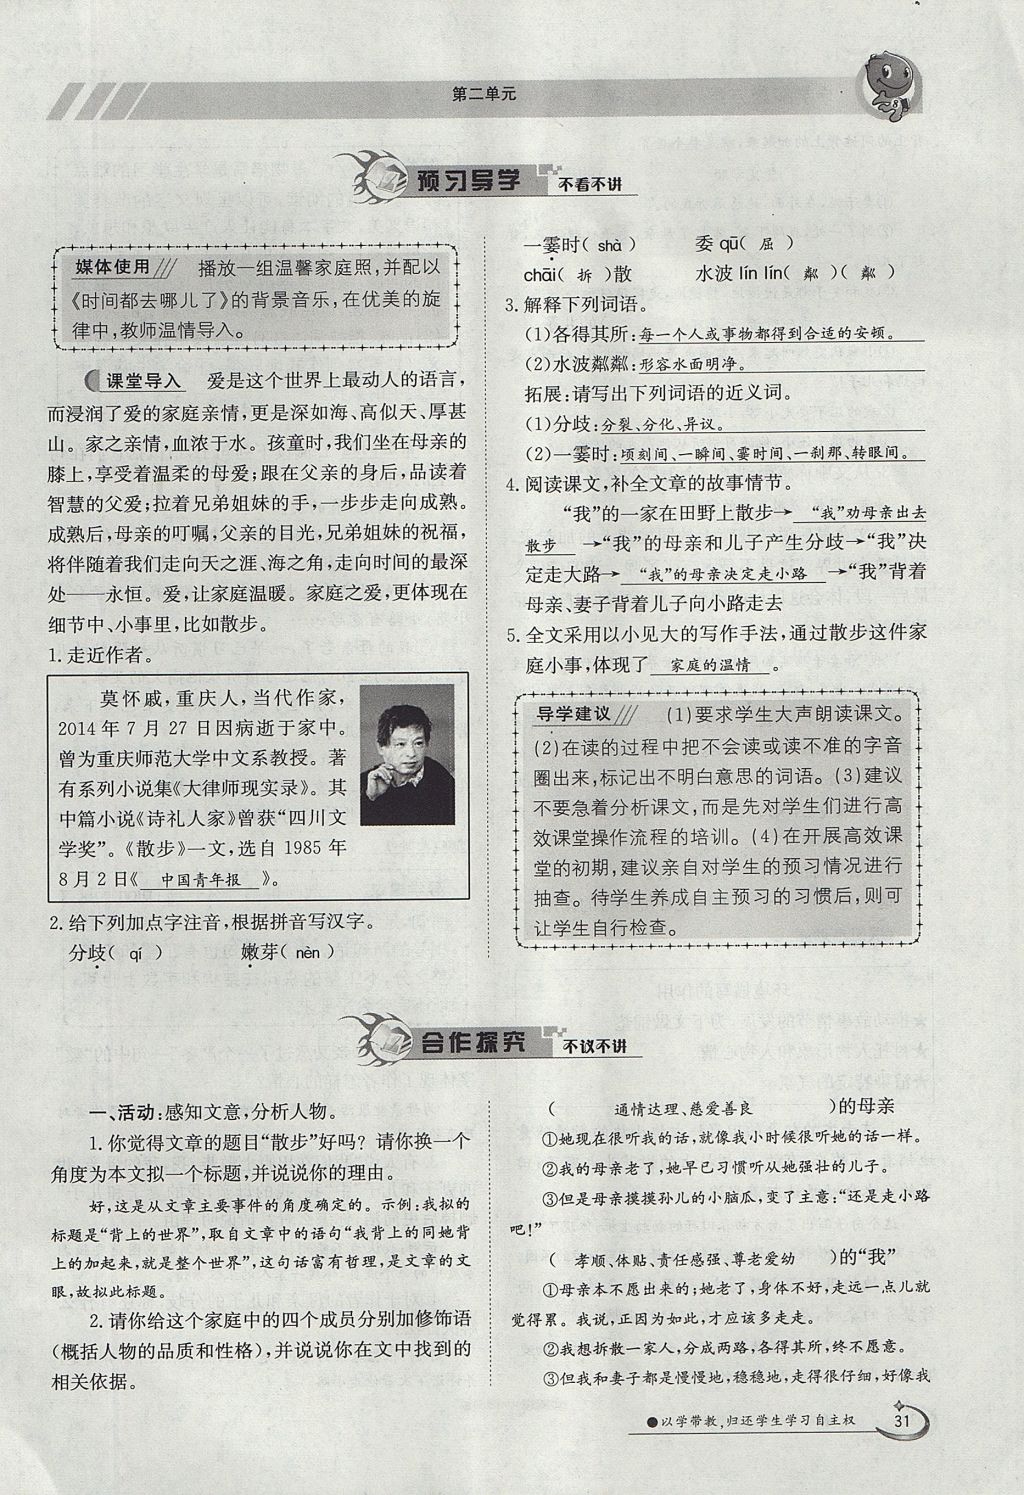 第二单元
预习导学 不看不讲
媒体使用 播放一组温馨家庭照,并配以
《时间都去哪儿了》的背景音乐,在优美的旋
律中,教师温情导入。
课堂导入 爱是这个世界上最动人的语言,
而浸润了爱的家庭亲情,更是深如海、高似天、厚甚
山。家之亲情,血浓于水。孩童时,我们坐在母亲的
膝上,享受着温柔的母爱;跟在父亲的身后,品读着
智慧的父爱;拉着兄弟姐妹的手,一步步走向成熟。
成熟后,母亲的叮嘱,父亲的目光,兄弟姐妹的祝福,
将伴随着我们走向天之涯、海之角,走向时间的最深
处——永恒。爱,让家庭温暖。家庭之爱,更体现在
细节中、小事里,比如散步。
1. 走近作者。
莫怀戚,重庆人,当代作家,
2014年7月27日因病逝于家中。
曾为重庆师范大学中文系教授。著
有系列小说集《大律师现实录》。其
中篇小说《诗礼人家》曾获“四川文
学奖”。《散步》一文,选自1985年
8月2日《 中国青年报 》。
2. 给下列加点字注音,根据拼音写汉字。
分歧( qí ) 嫩芽( nèn )
一霎时( shà ) 委 qū( 屈 )
chāi( 拆 )散 水波 lín lín( 粼 )( 粼 )
3. 解释下列词语。
(1)各得其所:每一个人或事物都得到合适的安顿。
(2)水波粼粼:形容水面明净。
拓展:请写出下列词语的近义词。
(1)分歧:分裂、分化、异议。
(2)一霎时:顷刻间、一瞬间、霎时间、一刹那、转眼间。
4. 阅读课文,补全文章的故事情节。
“我”的一家在田野上散步→ “我”劝母亲出去
散步 →“我”的母亲和儿子产生分歧→“我”决
定走大路→ “我”的母亲决定走小路 →“我”背着
母亲、妻子背着儿子向小路走去
5. 全文采用以小见大的写作手法,通过散步这件家
庭小事,体现了 家庭的温情 。
导学建议 (1)要求学生大声朗读课文。
(2)在读的过程中把不会读或读不准的字音
圈出来,标记出不明白意思的词语。(3)建议
不要急着分析课文,而是先对学生们进行高
效课堂操作流程的培训。(4)在开展高效课
堂的初期,建议亲自对学生的预习情况进行
抽查。待学生养成自主预习的习惯后,则可
让学生自行检查。
合作探究 不议不讲
一、活动:感知文意,分析人物。
1. 你觉得文章的题目“散步”好吗?请你换一个
角度为本文拟一个标题,并说说你的理由。
好,这是从文章主要事件的角度确定的。示例:我拟的
标题是“背上的世界”,取自文章中的语句“我背上的同她背
上的加起来,就是整个世界”,这句话富有哲理,是文章的文
眼,故拟此标题。
2. 请你给这个家庭中的四个成员分别加修饰语
(概括人物的品质和性格),并说说你在文中找到的
相关依据。
( 通情达理、慈爱善良 )的母亲
①她现在很听我的话,就像我小时候很听她的话一样。
②我的母亲老了,她早已习惯听从她强壮的儿子。
③但是母亲摸摸孙儿的小脑瓜,变了主意:“还是走小路
吧!”
( 孝顺、体贴、责任感强、尊老爱幼 )的“我”
①母亲本不愿出来的;她老了,身体不好,走远一点儿就
觉得累。我说,正因为如此,才应该多走走。
②我想拆散一家人,分成两路,各得其所,终不愿意。
③但我和妻子都是慢慢地,稳稳地,走得很仔细,好像我
●以学带教,归还学生学习自主权 31